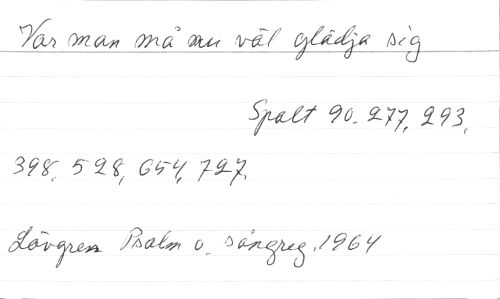 Var man må nu väl glädja sig
Spalt 90. 277, 293,
398, 528, 654, 727.
Lövgren Psalm o. sångreg. 1964